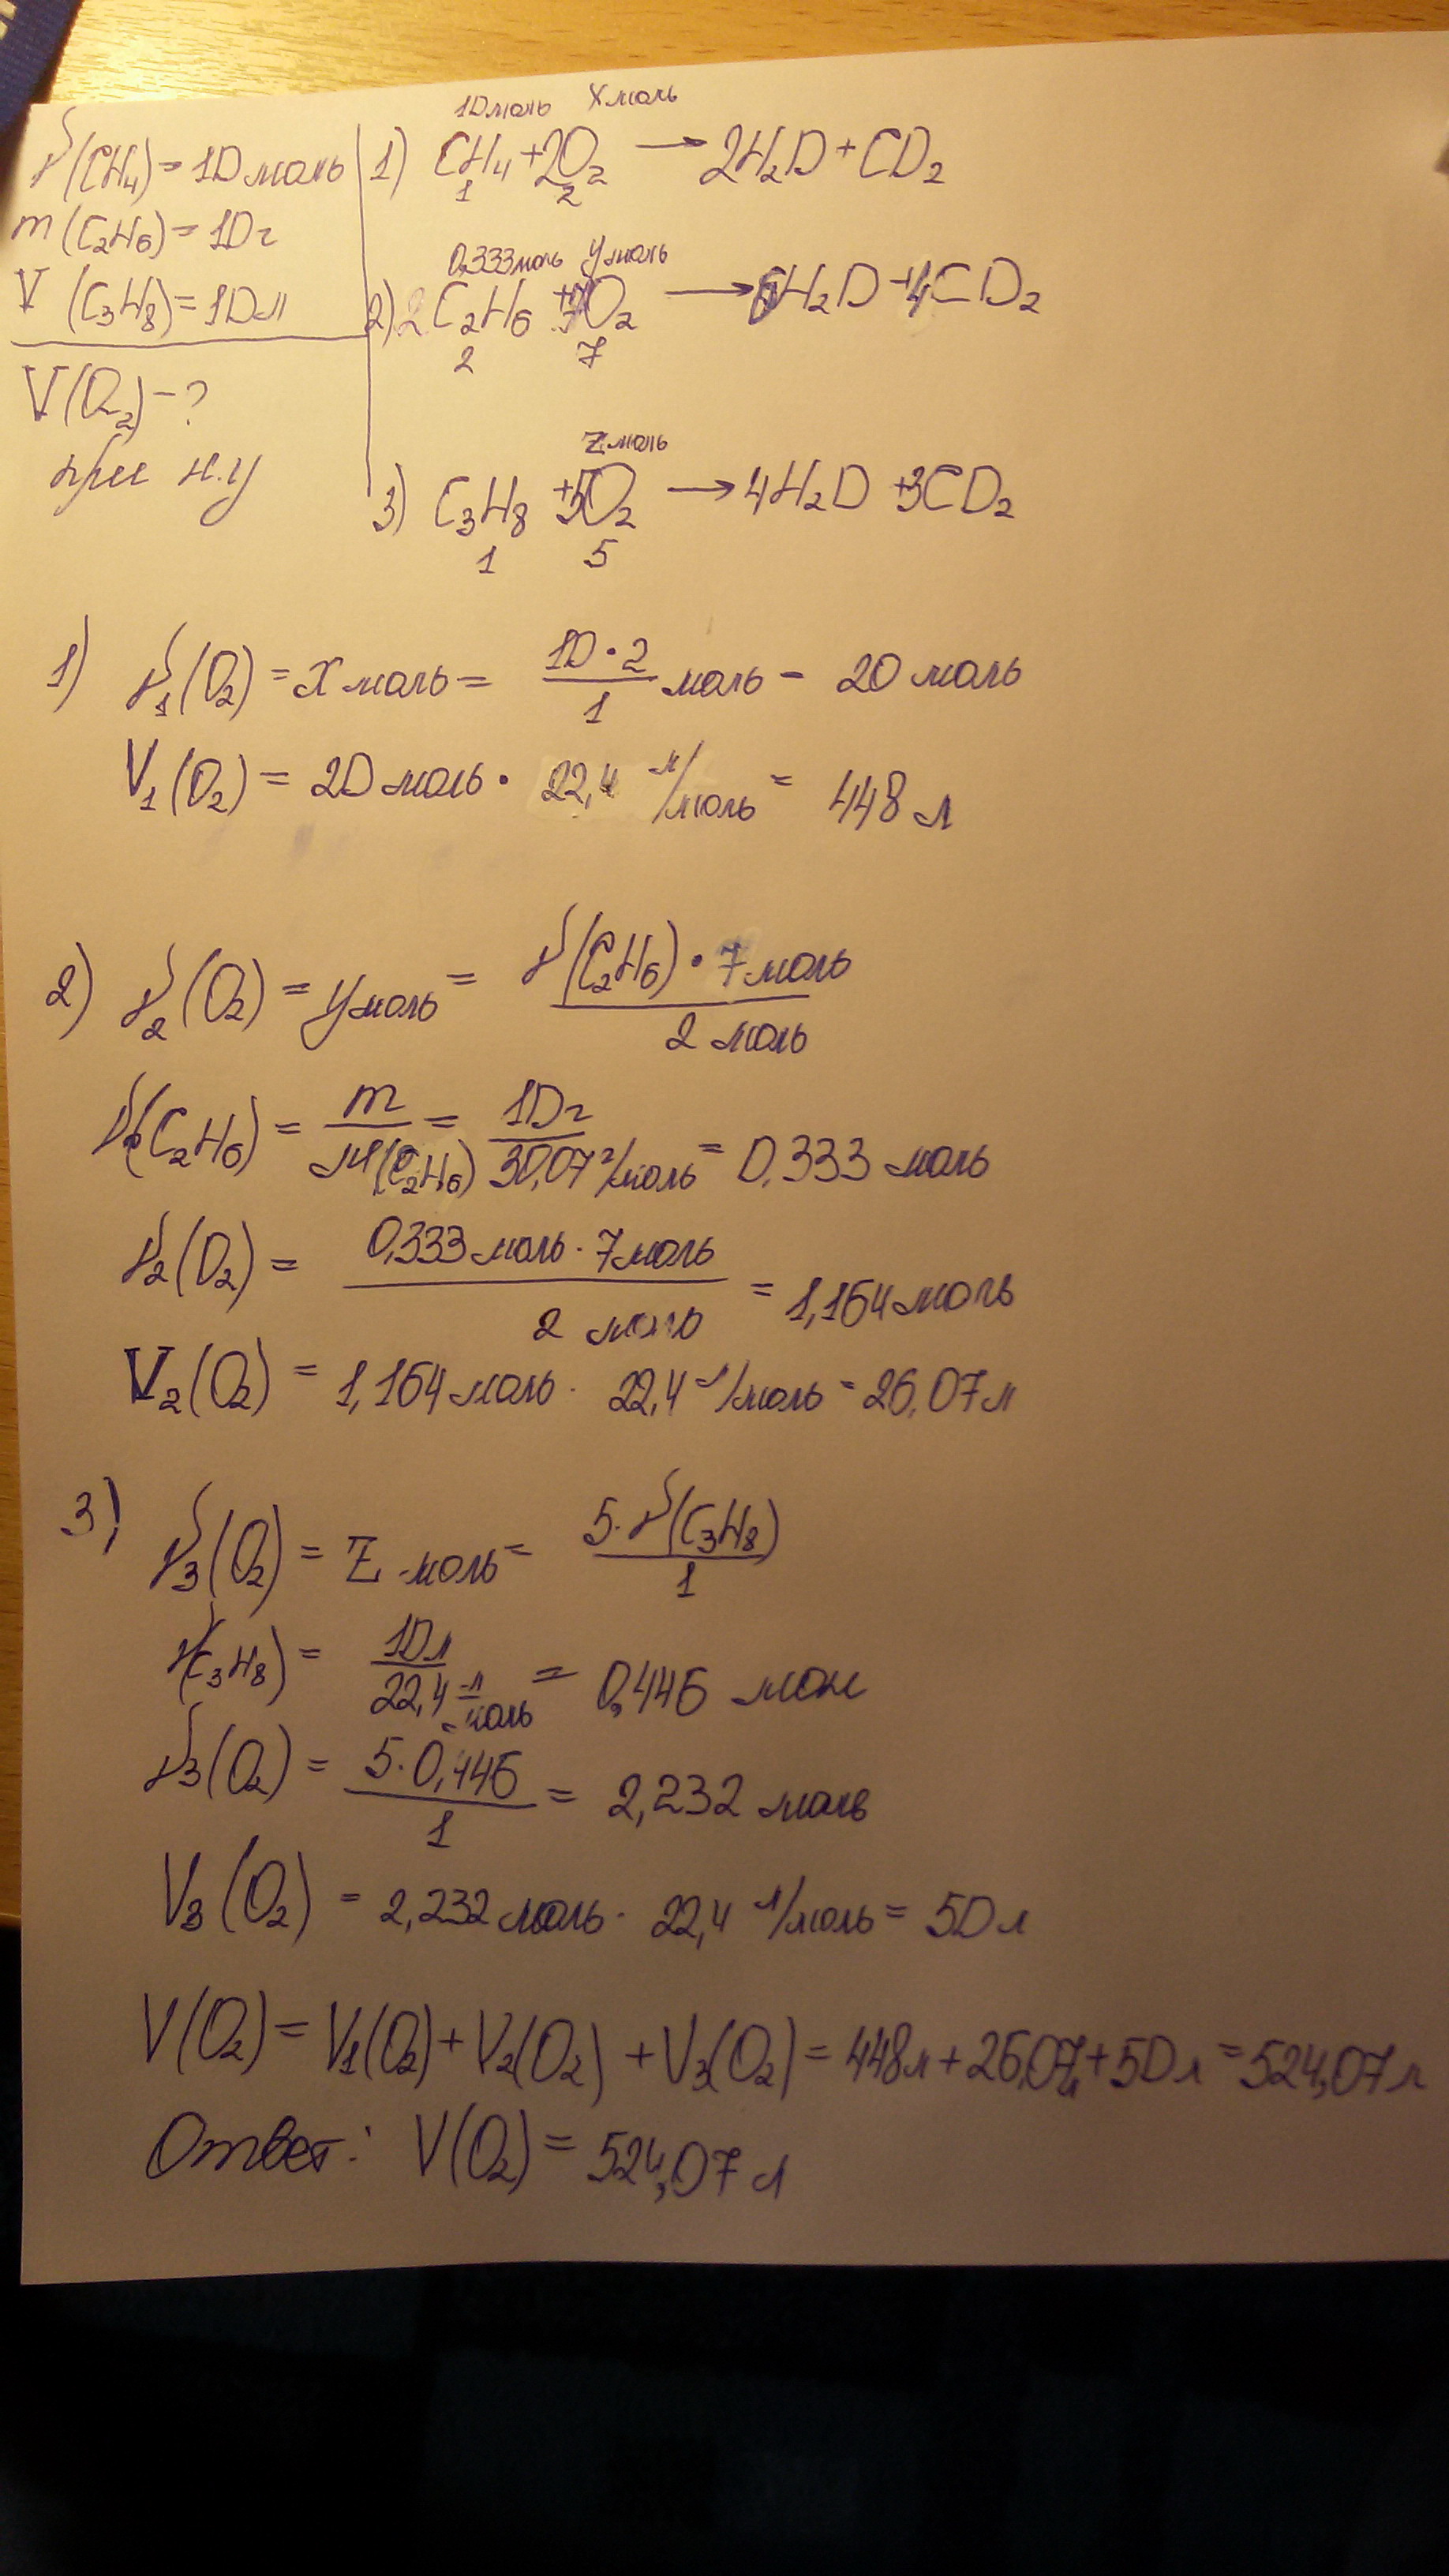 ν(CH₄) = 10 моль
m(C₂H₆) = 10 г
V(C₃H₈) = 10 л
V(O₂) - ?
при н.у
10 моль X моль
1) CH₄ + 2O₂ → 2H₂O + CO₂
1 2
0,333 моль y моль
2) 2C₂H₆ + 7O₂ → 6H₂O + 4CO₂
2 7
Z моль
3) C₃H₈ + 5O₂ → 4H₂O + 3CO₂
1 5
1) ν₁(O₂) = X моль = 10·2/1 моль = 20 моль
V₁(O₂) = 20 моль · 22,4 л/моль = 448 л
2) ν₂(O₂) = y моль = ν(C₂H₆) · 7 моль / 2 моль
ν(C₂H₆) = m/M(C₂H₆) = 10 г / 30,07 г/моль = 0,333 моль
ν₂(O₂) = 0,333 моль · 7 моль / 2 моль = 1,164 моль
V₂(O₂) = 1,164 моль · 22,4 л/моль = 26,07 л
3) ν₃(O₂) = Z моль = 5·ν(C₃H₈)/1
ν(C₃H₈) = 10 л / 22,4 л/моль = 0,446 мол
ν₃(O₂) = 5·0,446/1 = 2,232 моль
V₃(O₂) = 2,232 моль · 22,4 л/моль = 50 л
V(O₂) = V₁(O₂) + V₂(O₂) + V₃(O₂) = 448 л + 26,07 л + 50 л = 524,07 л
Ответ: V(O₂) = 524,07 л